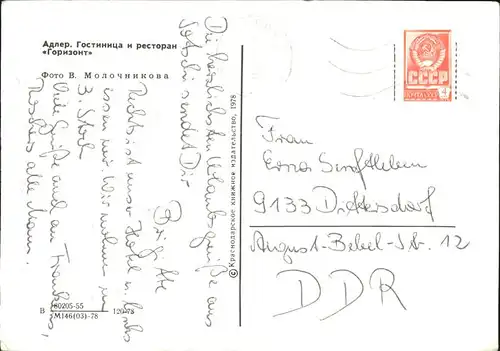 Адлер. Гостиница и ресторан
«Горизонт»
Фото В. Молочникова
Die herzlichsten Urlaubsgrüße aus
Sotschi sendet Dir
Brigitte
Rechts ist unser Hotel u. links
essen wir. Wir wohnen im
3. Stock
Viele Grüße auch an
alle
В 60205-55
М146(03)-78 120-78
© Краснодарское книжное издательство, 1978
СССР
Frau
Erna
9133 Dittersdorf
August-Bebel-Str. 12
DDR